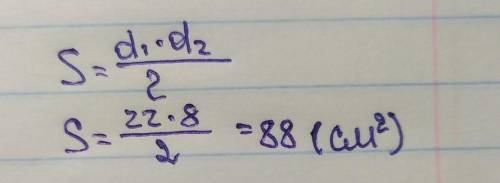 S = d₁·d₂ / 2
S = 22·8 / 2 = 88 (см²)